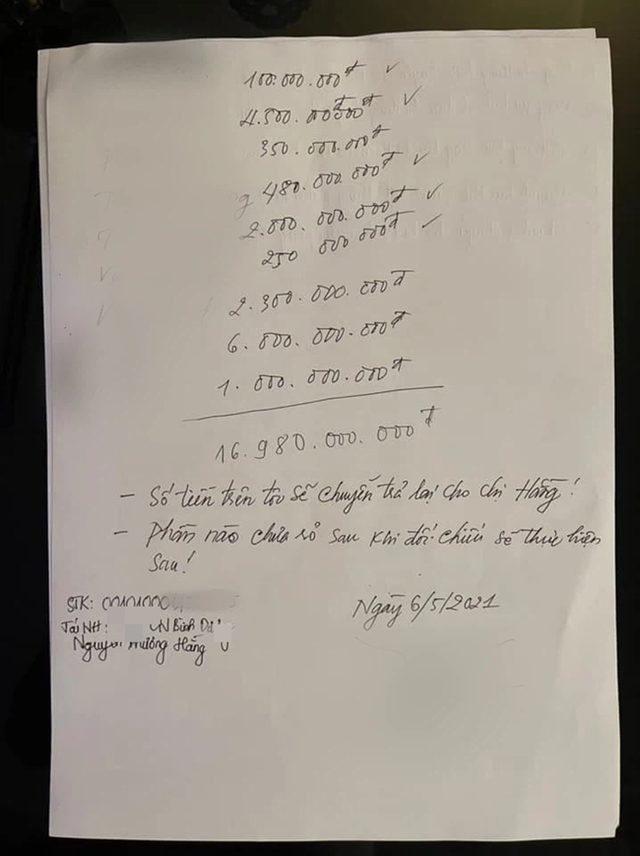 100.000.000đ ✓
4.500.000.000đ ✓
350.000.000đ
480.000.000đ ✓
2.000.000.000đ ✓
250 000 000đ ✓
2.300.000.000đ
6.000.000.000đ
1.000.000.000đ
16.980.000.000đ
- Số tiền trên tôi sẽ chuyển trả lại cho chị Hằng!
- Phần nào chưa rỏ sau khi đối chiếu sẽ thực hiện
sau!
STK:
Tại NH: VN Bình
Ngày 6/5/2021
Phương Hằng